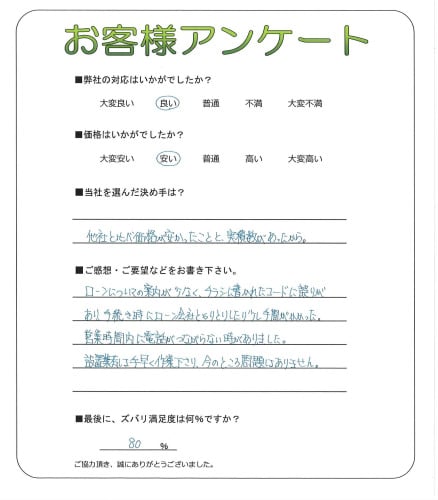 お客様アンケート
■弊社の対応はいかがでしたか？
大変良い 良い 普通 不満 大変不満
■価格はいかがでしたか？
大変安い 安い 普通 高い 大変高い
■当社を選んだ決め手は？
他社とくらべ価格が安かったことと、実績数があったから。
■ご感想・ご要望などをお書き下さい。
ローンについての案内が少なく、チラシに書かれたコードに誤りが
あり、手続き時にローン会社とやりとりしたりグレ手間がかかった。
営業時間内に電話がつながらない時がありました。
設置業者は手早く作業下さり、今のところ問題はありません。
■最後に、ズバリ満足度は何％ですか？
80 ％
ご協力頂き、誠にありがとうございました。